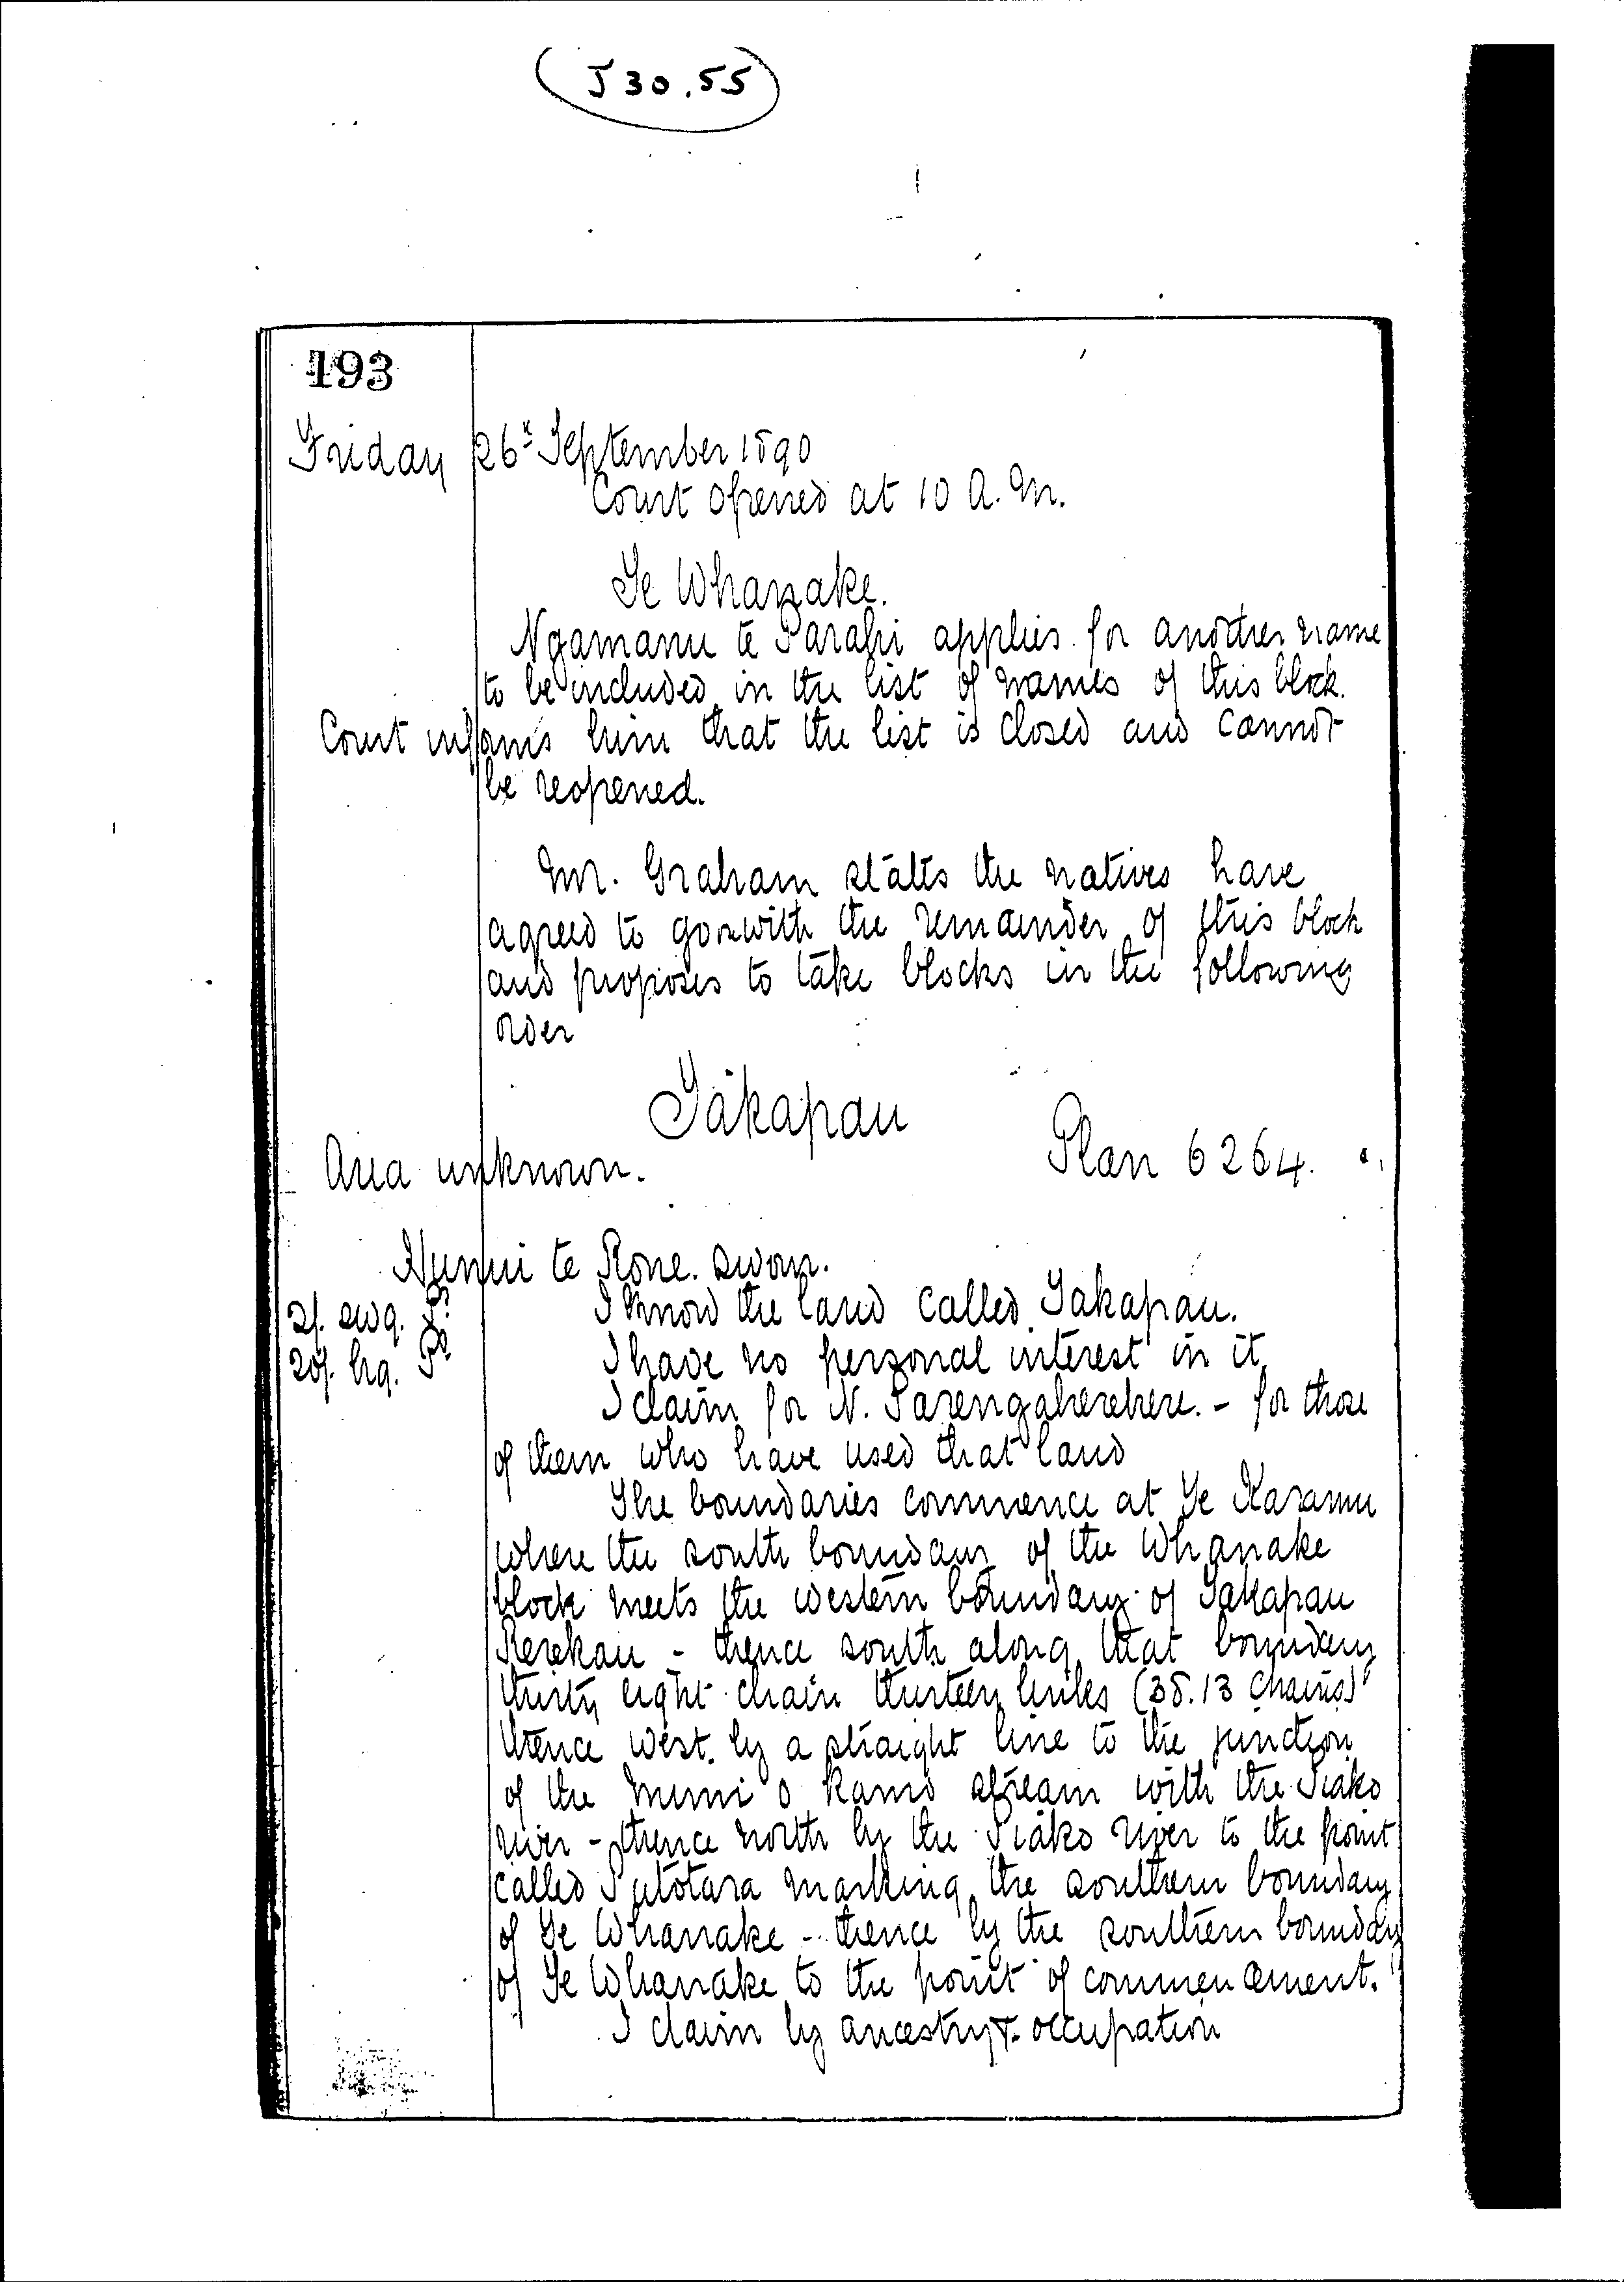 J 30.55
193
Friday 26th September 1890
Court opened at 10 A.M.
Te Whanake.
Ngamanu te Parahi applies for another name
to be included in the list of names of this block.
Court informs him that the list is closed and cannot
be reopened.
Mr. Graham states the natives have
agreed to go on with the remainder of this block
and proposes to take blocks in the following
order
Takapau
Plan 6264.
Area unknown.
te Rore. sworn.
2/. swg. Pd.
20/. hg. Pd.
I know the land called Takapau.
I have no personal interest in it
I claim for N. Parengaherehere. - for those
of them who have used that land
The boundaries commence at Te Karamu
where the south boundary of the Whanake
block meets the western boundary of Takapau
Rerekau - thence south along that boundary
thirty eight chain thirteen links (38.13 chains)
thence west. by a straight line to the junction
of the Mimi o Kamo stream with the Piako
river - thence north by the Piako river to the point
called Putotara marking the southern boundary
of Te Whanake - thence by the southern boundary
of Te Whanake to the point of commencement.
I claim by ancestry & occupation